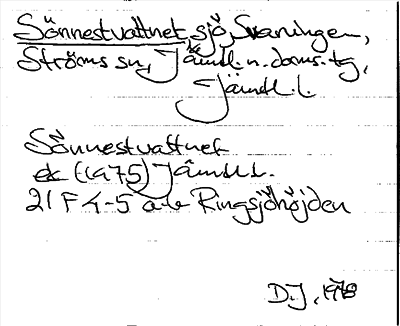 Sönnestvattnet, sjö, Svaningen,
Ströms sn, Jämtl. n. doms. tg,
Jämtl. l.
Sönnestvattnet
ek (1975) Jämtl. l.
21 F 4-5 a-b Ringsjöhöjden
D.J, 1978